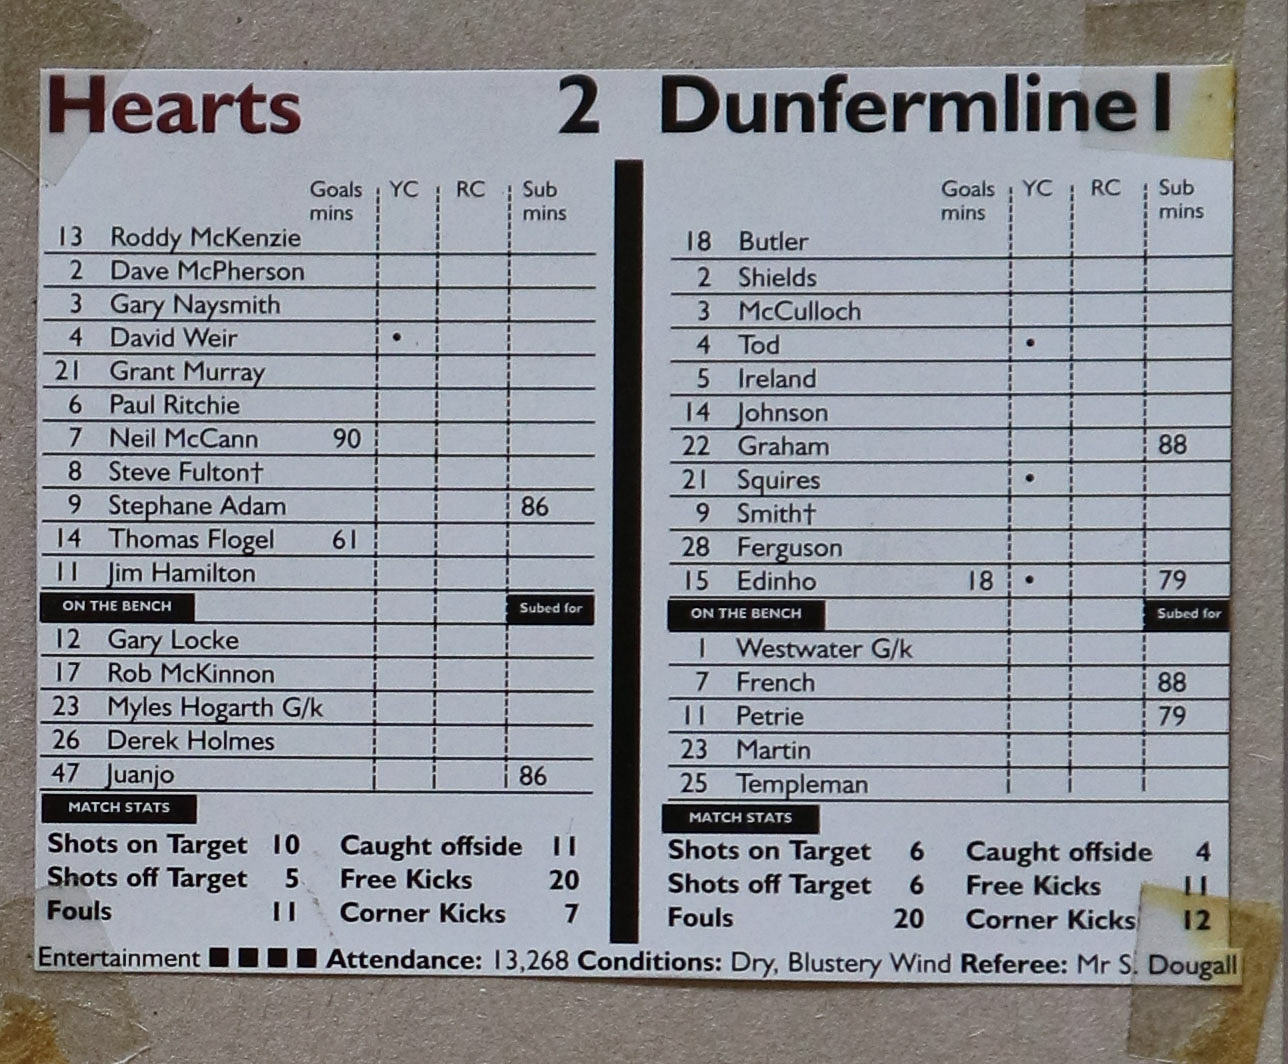 Hearts 2
Goals mins YC RC Sub mins
13 Roddy McKenzie
2 Dave McPherson
3 Gary Naysmith
4 David Weir •
21 Grant Murray
6 Paul Ritchie
7 Neil McCann 90
8 Steve Fulton†
9 Stephane Adam 86
14 Thomas Flogel 61
11 Jim Hamilton
ON THE BENCH Subed for
12 Gary Locke
17 Rob McKinnon
23 Myles Hogarth G/k
26 Derek Holmes
47 Juanjo 86
MATCH STATS
Shots on Target 10 Caught offside 11
Shots off Target 5 Free Kicks 20
Fouls 11 Corner Kicks 7
Dunfermline 1
Goals mins YC RC Sub mins
18 Butler
2 Shields
3 McCulloch
4 Tod •
5 Ireland
14 Johnson
22 Graham 88
21 Squires •
9 Smith†
28 Ferguson
15 Edinho 18 • 79
ON THE BENCH Subed for
1 Westwater G/k
7 French 88
11 Petrie 79
23 Martin
25 Templeman
MATCH STATS
Shots on Target 6 Caught offside 4
Shots off Target 6 Free Kicks 11
Fouls 20 Corner Kicks 12
Entertainment ■ ■ ■ ■ Attendance: 13,268 Conditions: Dry, Blustery Wind Referee: Mr S. Dougall